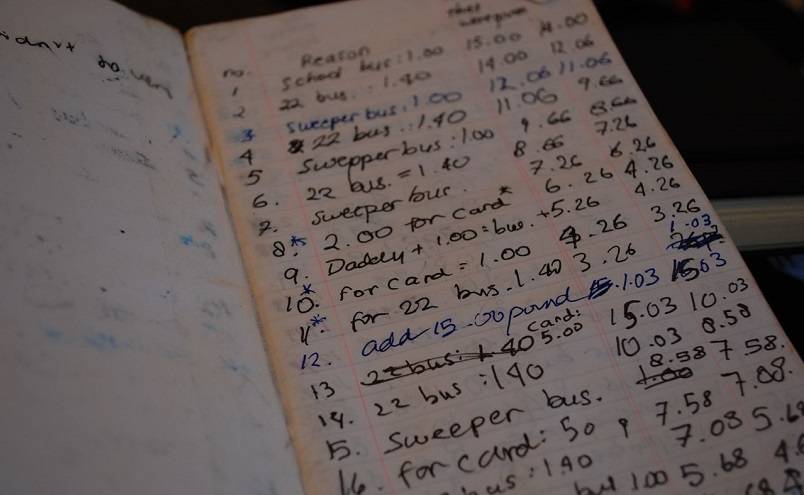 no. Reason
1 School bus: 1.00 15.00 14.00
2 22 bus.: 1.40 14.00 12.06
3 sweeper bus: 1.00 12.06 11.06
4 22 bus.: 1.40 11.06 9.66
5 Swepper bus: 1.00 9.66 8.66
6. 22 bus. = 1.40 8.66 7.26
7. sweeper bus. 7.26 6.26
8.* 2.00 for card* 6.26 4.26
9. Daddy + 1.00 = bus. +5.26 4.26
10.* for card = 1.00 4.26 3.26
11* for 22 bus. 1.40 3.26 1.03
12. add 15.00 pound 1.03 15.03
13 22 bus: 1.40 card: 5.00 15.03 10.03
14. 22 bus: 140 10.03 8.58
15. Sweeper bus. 8.58 7.58.
1.00
16. for card: 50 p 7.58 7.08.
bus: 140 7.08 5.68
100 5.68